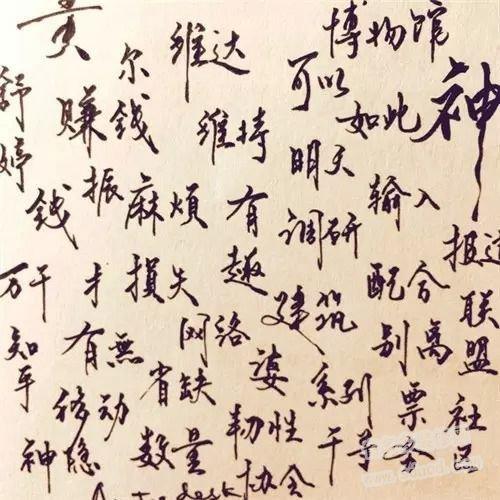 黄
尔
维达
博物馆
神
舒婷
赚钱
维持
可以
如此
明天
钱
振
麻煩
有趣
调研
输入
报道
万千
才
損失
建筑
配合
联盟
知乎
有無
网络
别离
社区
省缺
婆
系列
移动
票
神隐
数量
韧性
干事
协会